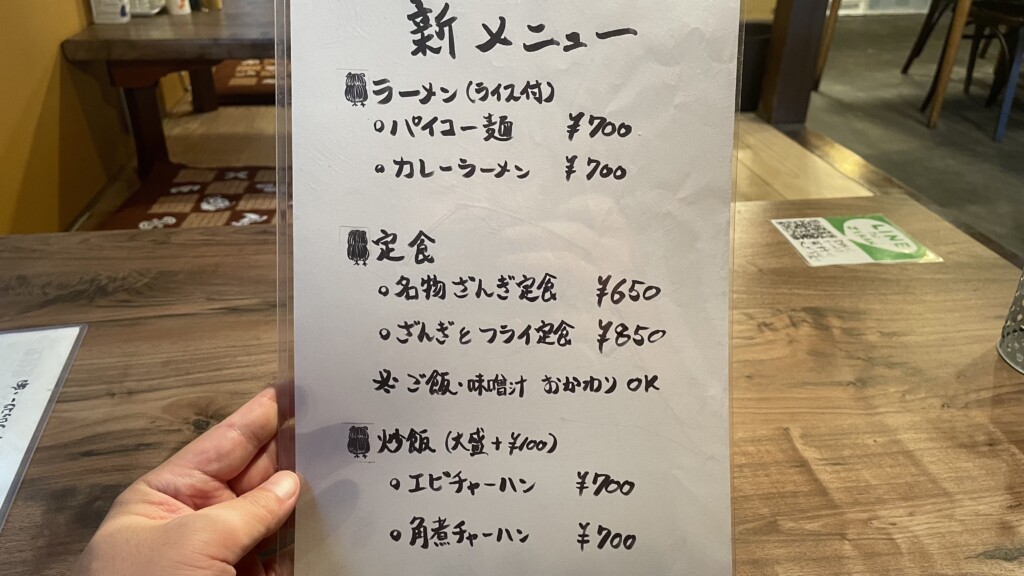 新メニュー
ラーメン(ライス付)
パイコー麺 ¥700
カレーラーメン ¥700
定食
名物ざんぎ定食 ¥650
ざんぎとフライ定食 ¥850
※ご飯・味噌汁 おかわりOK
炒飯(大盛+¥100)
エビチャーハン ¥700
角煮チャーハン ¥700
LINE